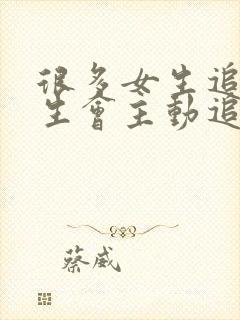 很多女生追
生會主動追
蔡威